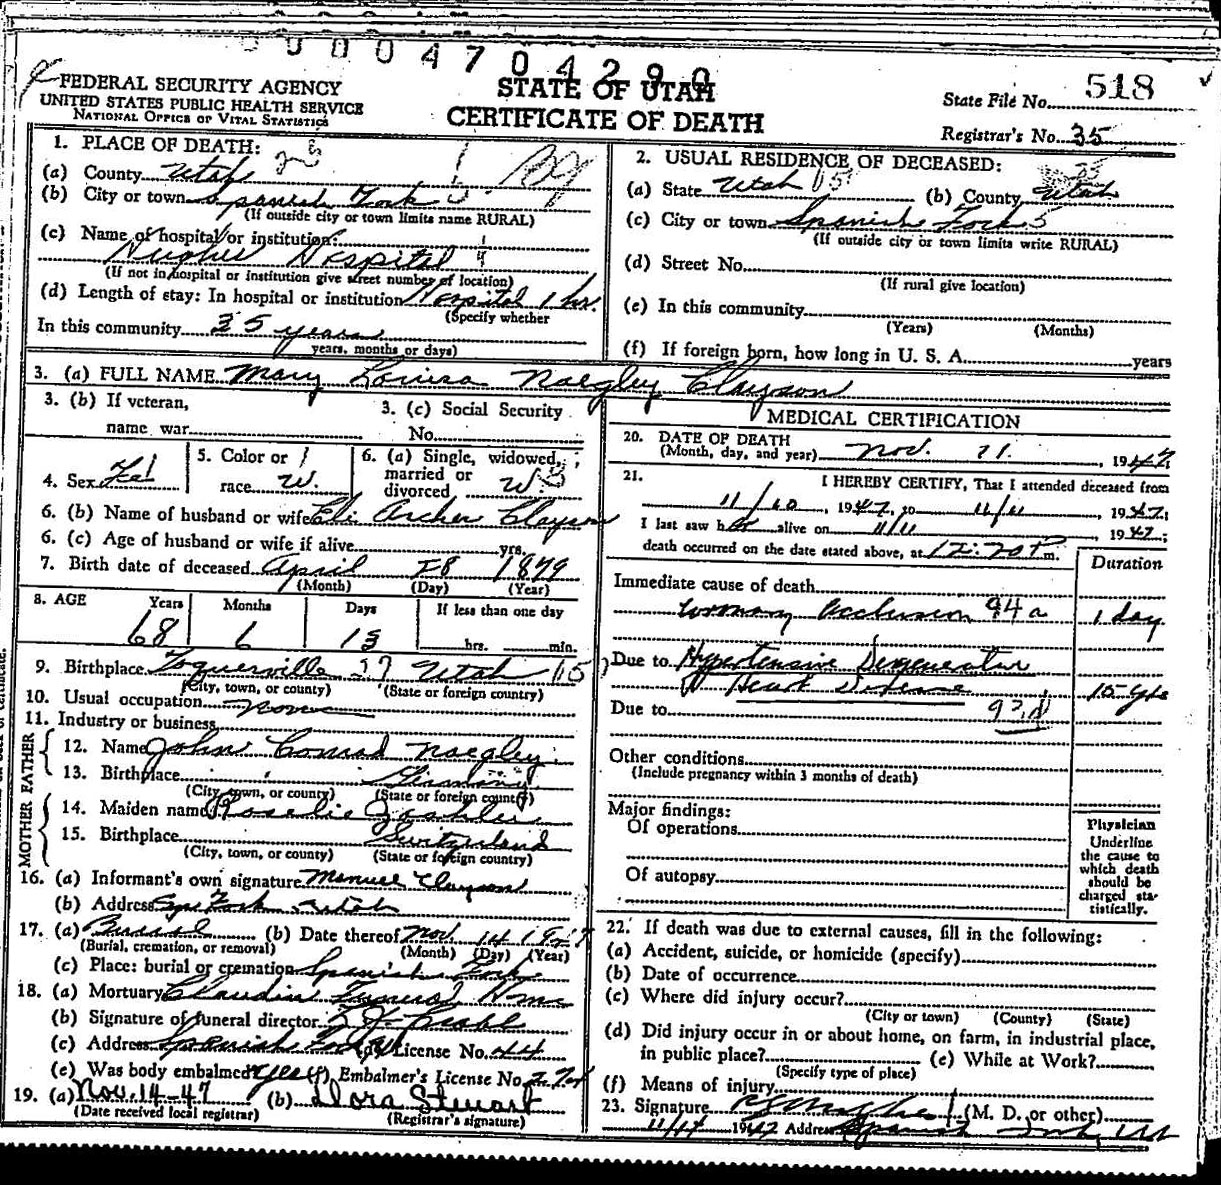 0004704290
FEDERAL SECURITY AGENCY
UNITED STATES PUBLIC HEALTH SERVICE
NATIONAL OFFICE OF VITAL STATISTICS
STATE OF UTAH
CERTIFICATE OF DEATH
State File No. 518
Registrar's No. 35
1. PLACE OF DEATH:
(a) County Utah
(b) City or town Spanish Fork
(If outside city or town limits name RURAL)
(c) Name of hospital or institution:
Hughes Hospital
(If not in hospital or institution give street number of location)
(d) Length of stay: In hospital or institution Hospital 1 hr.
(Specify whether
In this community 35 years
years, months or days)
2. USUAL RESIDENCE OF DECEASED:
(a) State Utah 15 (b) County Utah
(c) City or town Spanish Fork 5
(If outside city or town limits write RURAL)
(d) Street No.
(If rural give location)
(e) In this community
(Years) (Months)
(f) If foreign born, how long in U. S. A. years
3. (a) FULL NAME Mary Louisa Naegley Clayson
3. (b) If veteran, name war
3. (c) Social Security No.
4. Sex Fe
5. Color or race W.
6. (a) Single, widowed, married or divorced W
6. (b) Name of husband or wife Eli Archer Clayson
6. (c) Age of husband or wife if alive yrs.
7. Birth date of deceased April 28 1879
(Month) (Day) (Year)
8. AGE Years Months Days If less than one day
68 6 13 hrs. min.
9. Birthplace Toquerville Utah 15
(City, town, or county) (State or foreign country)
10. Usual occupation none
11. Industry or business
FATHER
12. Name John Conrad Naegley
13. Birthplace Germany
(City, town, or county) (State or foreign country)
MOTHER
14. Maiden name Roselie
15. Birthplace Switzerland
(City, town, or county) (State or foreign country)
16. (a) Informant's own signature Manuel Clayson
(b) Address Sp. Fork Utah
17. (a) Burial (b) Date thereof Nov 14 1947
(Burial, cremation, or removal) (Month) (Day) (Year)
(c) Place: burial or cremation Spanish Fork
18. (a) Mortuary Claudin Funeral Home
(b) Signature of funeral director
(c) Address Spanish Fork (d) License No. 44
(e) Was body embalmed yes (f) Embalmer's License No.
19. (a) Nov. 14-47 (b) Dora Stewart
(Date received local registrar) (Registrar's signature)
MEDICAL CERTIFICATION
20. DATE OF DEATH
(Month, day, and year) Nov. 11, 1947
21. I HEREBY CERTIFY, That I attended deceased from
11/10, 1947, to 11/11, 1947;
I last saw her alive on 11/11 1947;
death occurred on the date stated above, at 12:20 P m.
Duration
Immediate cause of death
Coronary Occlusion 94a 1 day
Due to Hypertensive Degenerative
Heart Disease 15 yrs
Due to 93d
Other conditions
(Include pregnancy within 3 months of death)
Major findings:
Of operations
Of autopsy
Physician
Underline
the cause to
which death
should be
charged sta-
tistically.
22. If death was due to external causes, fill in the following:
(a) Accident, suicide, or homicide (specify)
(b) Date of occurrence
(c) Where did injury occur?
(City or town) (County) (State)
(d) Did injury occur in or about home, on farm, in industrial place,
in public place? (e) While at Work?
(Specify type of place)
(f) Means of injury
23. Signature (M. D. or other)
11/14 1947 Address Spanish Fork, Ut